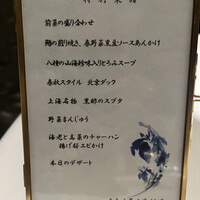 特別菜譜
前菜の盛り合わせ
鮑の煎り焼き、春野菜黒豆ソースあんかけ
八種の山海珍味入りとろみスープ
春秋スタイル 北京ダック
上海名物 黒酢のスブタ
野菜まんじゅう
海老と高菜のチャーハン
揚げ桜エビかけ
本日のデザート